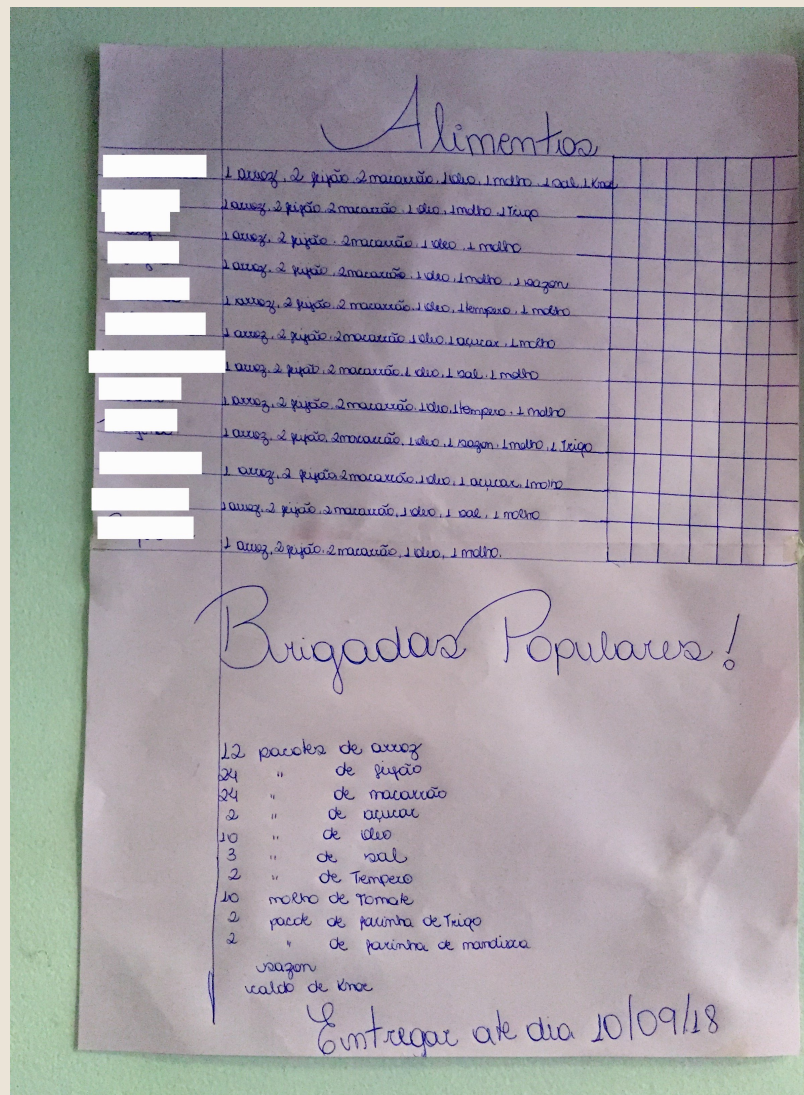 Alimentos
1 arroz, 2 feijão, 2 macarrão, 1 oleo, 1 molho, 1 sal, 1 Knor
1 arroz, 2 feijão, 2 macarrão, 1 oleo, 1 molho, 1 Trigo
1 arroz, 2 feijão, 2 macarrão, 1 oleo, 1 molho
1 arroz, 2 feijão, 2 macarrão, 1 oleo, 1 molho, 1 sazon
1 arroz, 2 feijão, 2 macarrão, 1 oleo, 1 tempero, 1 molho
1 arroz, 2 feijão, 2 macarrão, 1 oleo, 1 açucar, 1 molho
1 arroz, 2 feijão, 2 macarrão, 1 oleo, 1 sal, 1 molho
1 arroz, 2 feijão, 2 macarrão, 1 oleo, 1 tempero, 1 molho
1 arroz, 2 feijão, 2 macarrão, 1 oleo, 1 sazon, 1 molho, 1 Trigo
1 arroz, 2 feijão, 2 macarrão, 1 oleo, 1 açucar, 1 molho
1 arroz, 2 feijão, 2 macarrão, 1 oleo, 1 sal, 1 molho
1 arroz, 2 feijão, 2 macarrão, 1 oleo, 1 molho.
Brigadas Populares!
12 pacotes de arroz
24 " de feijão
24 " de macarrão
2 " de açucar
10 " de oleo
3 " de sal
2 " de Tempero
10 molho de Tomate
2 pacote de farinha de Trigo
2 " de farinha de mandioca
sazon
caldo de Knor
Entregar até dia 10/09/18